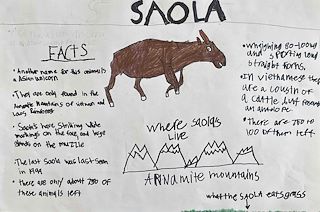 SAOLA
FACTS
• Another name for this animal is
a Asian unicorn
• They are only found in the
Annamite Mountains of vietnam and
Laos
• Saola's have striking white
markings on the face, and large
glands on the muzzle
• The last Saola was last seen
in 1999
• there are only about 250 of
these animals left
where saolas
LIVE
ANNamite mountains
• weighing 80-100
and sporting long
straight horns.
• IN vietnamese they
are a cousin of
a cattle but
an antelope
• There are 750 to
100 of them left
what the SAOLA eats grass